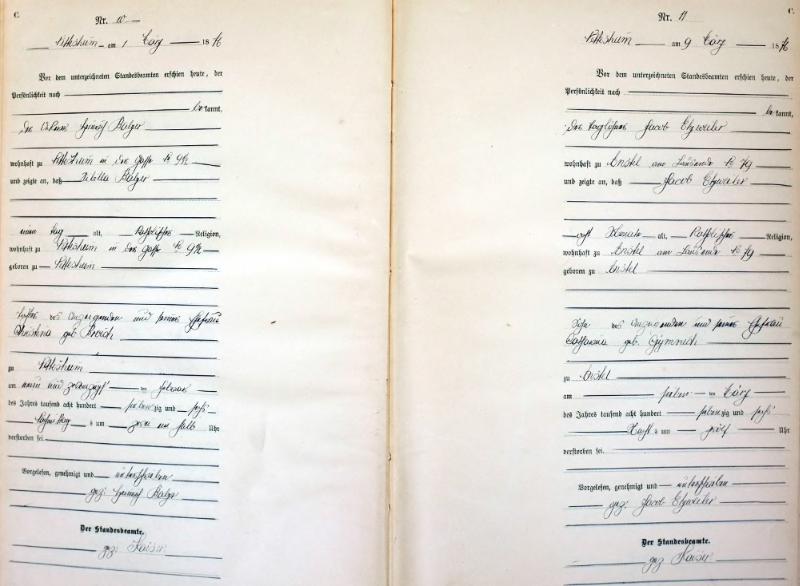 C.
Nr. 10
am 1 März 1876
Vor dem unterzeichneten Standesbeamten erschien heute, der
Persönlichkeit nach
be kannt,
Der Heinrich Balger
wohnhaft zu in der Gasse № 9½
und zeigte an, daß Sibilla Balger
ein Tag alt, Katholischer Religion,
wohnhaft zu in der Gasse № 9½
geboren zu
Tochter des Anzeigenden und seiner Ehefrau
Christina geb. Broich
zu
am neun und zwanzigsten Februar
des Jahres tausend acht hundert siebenzig und sechs
Nachmittags um zwei ein halb Uhr
verstorben sei.
Vorgelesen, genehmigt und unterschrieben
gez. Heinrich Balger
Der Standesbeamte.
gez. Kaiser
C.
Nr. 11
am 9 März 1876
Vor dem unterzeichneten Standesbeamten erschien heute, der
Persönlichkeit nach
be kannt,
Der Taglöhner Jacob Etzweiler
wohnhaft zu Anstel am № 79
und zeigte an, daß Jacob Etzweiler
acht Monate alt, Katholischer Religion,
wohnhaft zu Anstel am № 79
geboren zu Anstel
Sohn des Anzeigenden und seiner Ehefrau
Catharina geb. Gymnich
zu Anstel
am sieben ten März
des Jahres tausend acht hundert siebenzig und sechs
um Uhr
verstorben sei.
Vorgelesen, genehmigt und unterschrieben
gez. Jacob Etzweiler
Der Standesbeamte.
gez. Kaiser